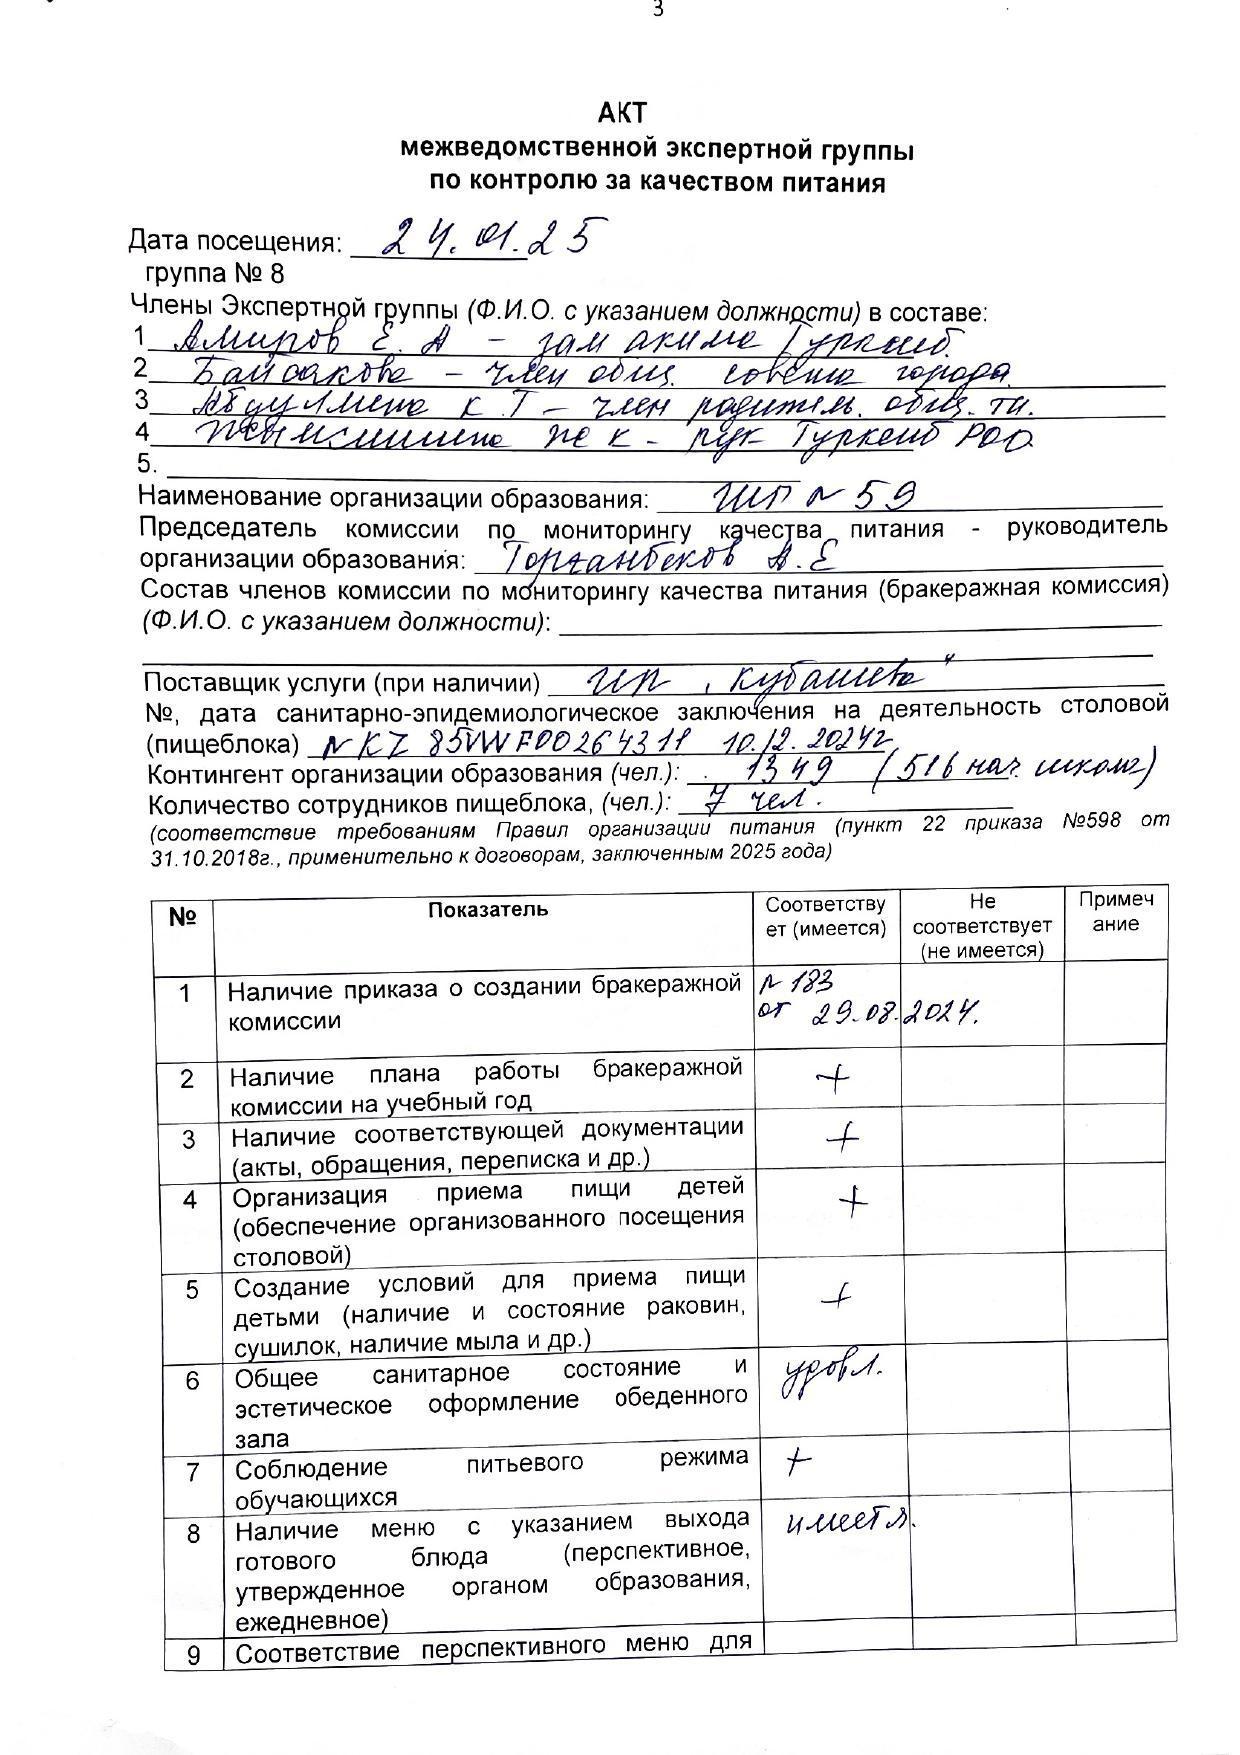 3
АКТ
межведомственной экспертной группы
по контролю за качеством питания
Дата посещения: 24.01.25
группа № 8
Члены Экспертной группы (Ф.И.О. с указанием должности) в составе:
1 Амиров Е. А – зам акима Турксиб.
2 Байбакова – член общ. совета города
3 К Т – член родитель. общ.
4 Ж К - рук Турксиб РОО
5.
Наименование организации образования: ШГ № 59
Председатель комиссии по мониторингу качества питания - руководитель
организации образования: Торганбеков А. Е
Состав членов комиссии по мониторингу качества питания (бракеражная комиссия)
(Ф.И.О. с указанием должности):
Поставщик услуги (при наличии) ИП "Кубашева"
№, дата санитарно-эпидемиологическое заключения на деятельность столовой
(пищеблока) № KZ 85VWF00264311 10.12.2024г
Контингент организации образования (чел.): 1349 (516 нач. школа)
Количество сотрудников пищеблока, (чел.): 7 чел.
(соответствие требованиям Правил организации питания (пункт 22 приказа №598 от
31.10.2018г., применительно к договорам, заключенным 2025 года)
№ Показатель Соответству Не Примеч
ет (имеется) соответствует ание
(не имеется)
1 Наличие приказа о создании бракеражной № 183
комиссии от 29.08.2024.
2 Наличие плана работы бракеражной +
комиссии на учебный год
3 Наличие соответствующей документации +
(акты, обращения, переписка и др.)
4 Организация приема пищи детей +
(обеспечение организованного посещения
столовой)
5 Создание условий для приема пищи +
детьми (наличие и состояние раковин,
сушилок, наличие мыла и др.)
6 Общее санитарное состояние и удовл.
эстетическое оформление обеденного
зала
7 Соблюдение питьевого режима +
обучающихся
8 Наличие меню с указанием выхода имеется.
готового блюда (перспективное,
утвержденное органом образования,
ежедневное)
9 Соответствие перспективного меню для